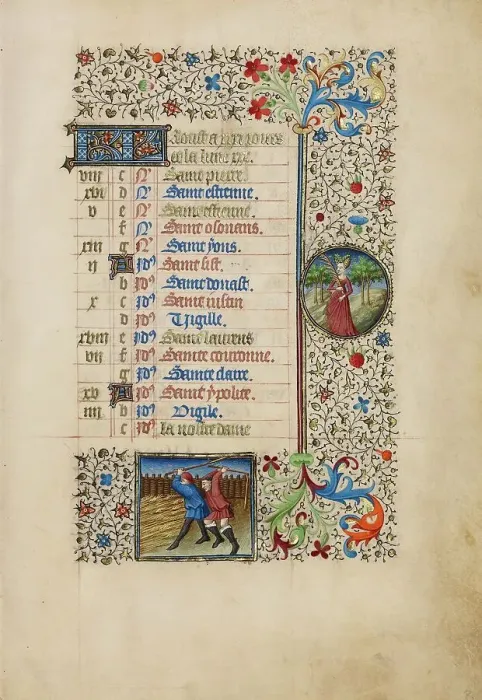 Aoust a xxxi jours
et la lune xxx.
viii c N Saint pierre
xvi d N Saint estienne.
v e N Saint estienne.
f N Saint osouans.
xiii g N Saint yons.
ii A Id Saint sist.
b Id Saint donast.
x c Id Sainte iustin
d Id Vigille.
xviii e Id Saint laurens
vii f Id Sainte couronne.
g Id Sainte claire.
xv A Id Saint ypolite.
iiii b Id Vigile.
c Id la nostre dame